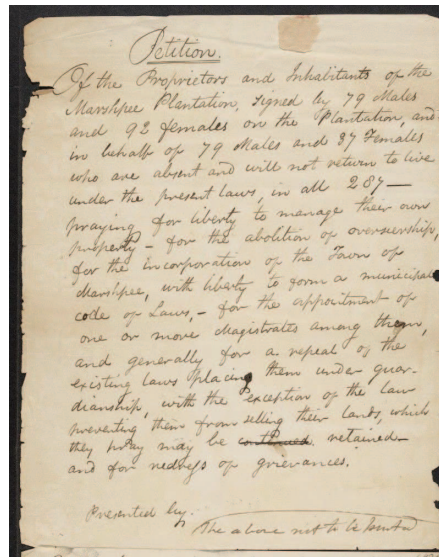 Petition.
Of the Proprietors and Inhabitants of the
Marshpee Plantation, signed by 79 Males
and 92 females on the Plantation, and
in behalf of 79 Males and 37 Females
who are absent and will not return to live
under the present laws, in all 287—
praying for liberty to manage their own
property – for the abolition of overseership,
for the incorporation of the Town of
Marshpee, with liberty to form a municipal
code of Laws, – for the appointment of
one or more Magistrates among them,
and generally for a repeal of the
existing laws placing them under guar-
dianship, with the exception of the law
preventing them from selling their lands, which
they pray may be continued retained –
and for redress of grievances.
Presented by.
The above not to be printed